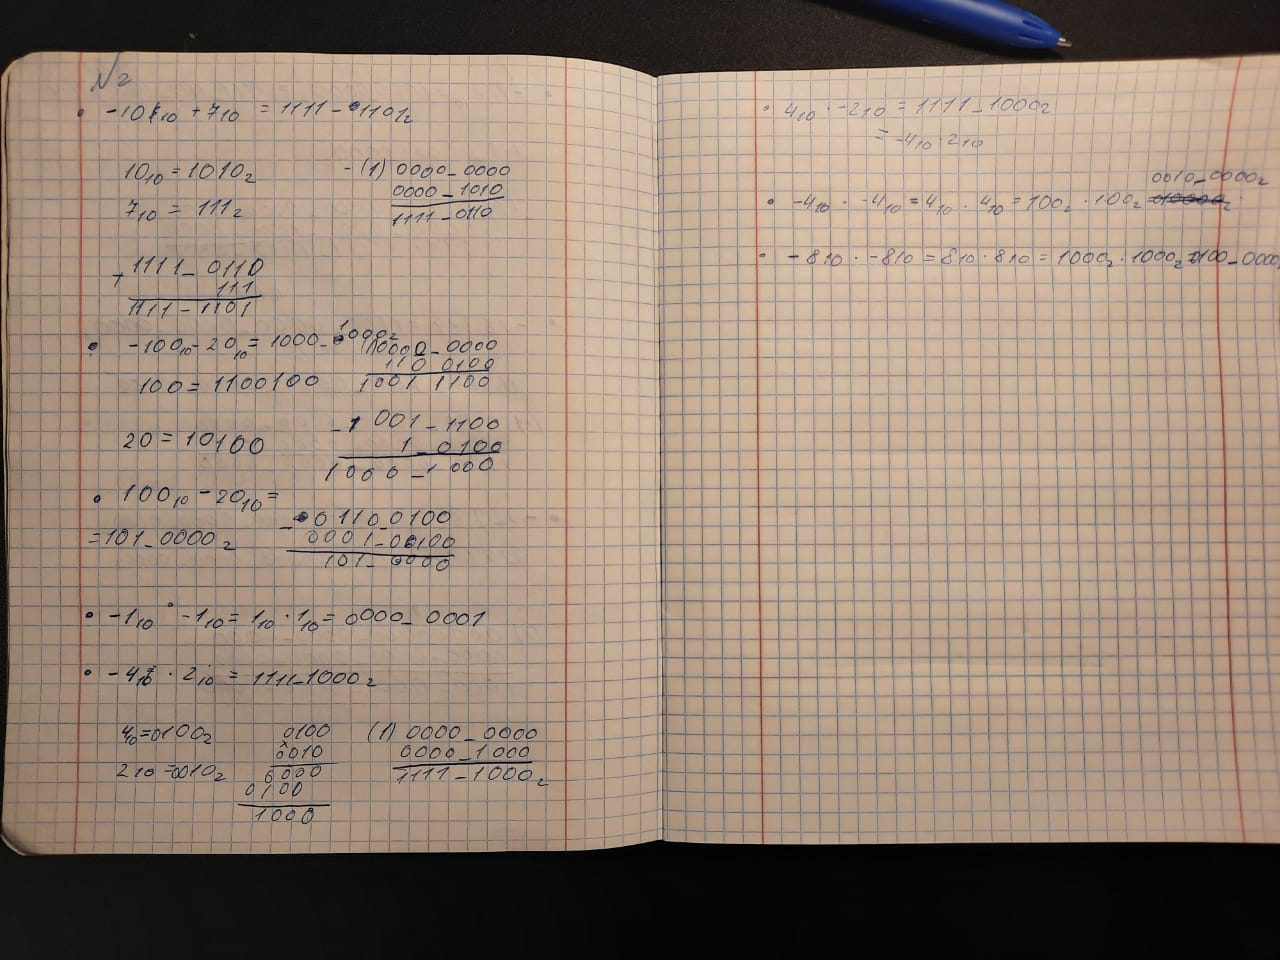 №2
• -10₁₀ + 7₁₀ = 1111-1101₂
10₁₀ = 1010₂
7₁₀ = 111₂
- (1) 0000_0000
0000_1010
1111-0110
+ 1111_0110
111
1111-1101
• -100₁₀ - 20₁₀ = 1000_1000₂
100 = 1100100
(1)0000_0000
110 0100
1001 1100
20 = 10100
- 1 001-1100
1_0100
1000_1000
• 100₁₀ - 20₁₀ =
= 101_0000₂
- 0110_0100
0001_0100
101_0000
• -1₁₀ · -1₁₀ = 1₁₀ · 1₁₀ = 0000_0001
• -4₁₀ · 2₁₀ = 1111_1000₂
4₁₀ = 0100₂
2₁₀ = 0010₂
0100
x
0010
0000
0100
1000
(1) 0000_0000
0000_1000
1111-1000₂
• 4₁₀ · -2₁₀ = 1111_1000₂
= -4₁₀ · 2₁₀
0010_0000₂
• -4₁₀ · -4₁₀ = 4₁₀ · 4₁₀ = 100₂ · 100₂
• -8₁₀ · -8₁₀ = 8₁₀ · 8₁₀ = 1000₂ · 1000₂ = 0100_0000₂